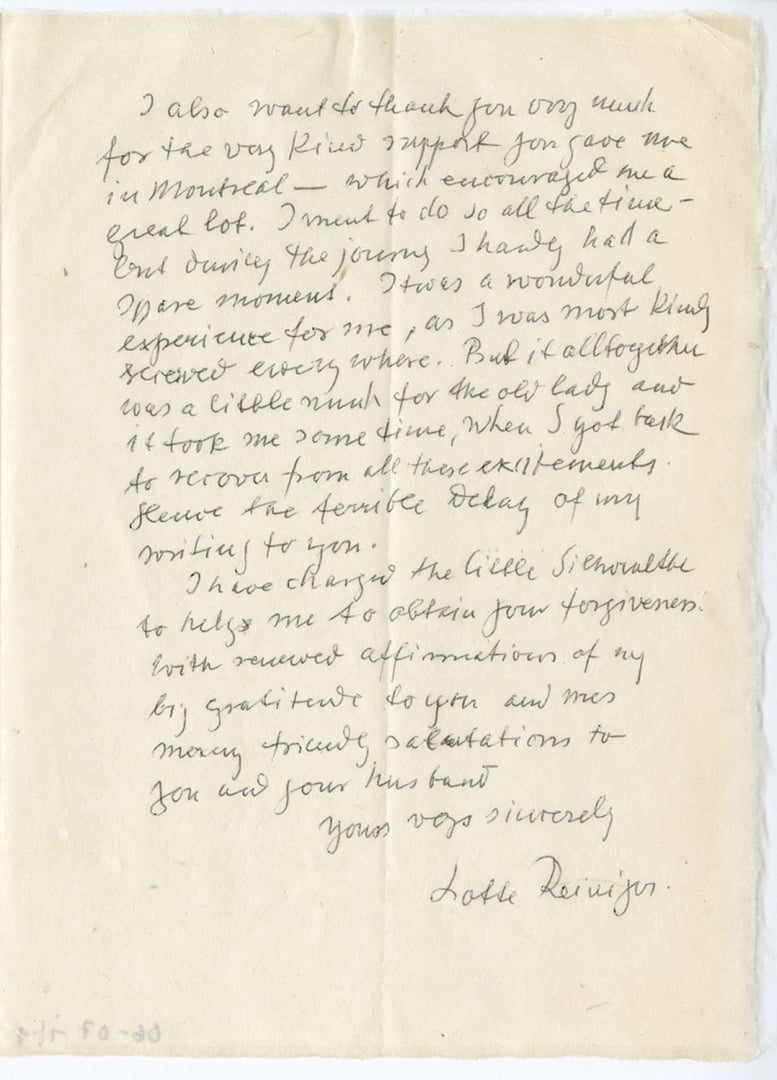 I also want to thank you very much
for the very kind support you gave me
in Montreal — which encouraged me a
great lot. I ment to do so all the time –
but during the journey I hardly had a
spare moment. It was a wonderful
experience for me, as I was most kindly
recieved every where. But it alltogether
was a little much for the old lady and
it took me some time, when I got back
to recover from all these exitements.
Hence the terrible delay of my
writing to you.
I have charged the little Silhouette
to help me to obtain your forgiveness.
With renewed affirmations of my
big gratitude to you and
many friendly salutations to
you and your husband
Yours very sincerely
Lotte Reiniger.